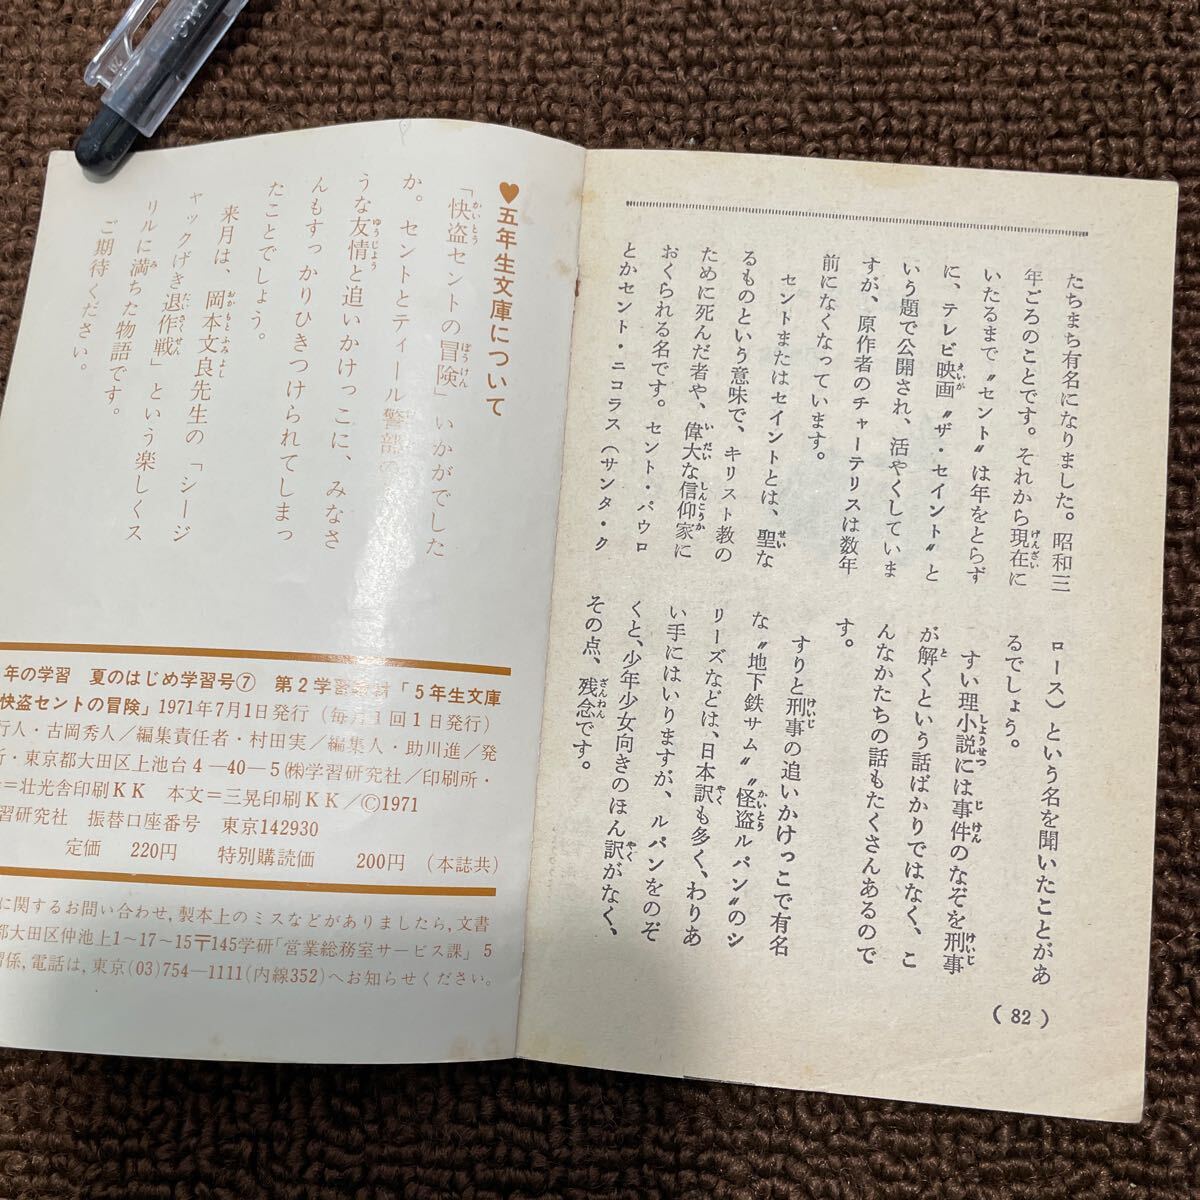 たちまち有名になりました。昭和三
年ごろのことです。それから現在に
いたるまで〝セント〟は年をとらず
に、テレビ映画〝ザ・セイント〟と
いう題で公開され、活やくしていま
すが、原作者のチャーテリスは数年
前になくなっています。
セントまたはセイントとは、聖な
るものという意味で、キリスト教の
ために死んだ者や、偉大な信仰家に
おくられる名です。セント・パウロ
とかセント・ニコラス（サンタ・ク
ロース）という名を聞いたことがあ
るでしょう。
すい理小説には事件のなぞを刑事
が解くという話ばかりではなく、こ
んなかたちの話もたくさんあるので
す。
すりと刑事の追いかけっこで有名
な〝地下鉄サム〟〝怪盗ルパン〟のシ
リーズなどは、日本訳も多く、わりあ
い手にはいりますが、ルパンをのぞ
くと、少年少女向きのほん訳がなく、
その点、残念です。
（82）
♥五年生文庫について
「快盗セントの冒険」いかがでした
か。セントとティール警部の
うな友情と追いかけっこに、みなさ
んもすっかりひきつけられてしまっ
たことでしょう。
来月は、岡本文良先生の「シージ
ャックげき退作戦」という楽しくス
リルに満ちた物語です。
ご期待ください。
年の学習 夏のはじめ学習号⑦ 第2学習教材「5年生文庫
快盗セントの冒険」1971年7月1日発行（毎月1回1日発行）
行人・古岡秀人／編集責任者・村田実／編集人・助川進／発
所・東京都大田区上池台4—40—5㈱学習研究社／印刷所・
＝壮光舎印刷KK 本文＝三晃印刷KK／©1971
習研究社 振替口座番号 東京142930
定価 220円 特別購読価 200円（本誌共）
に関するお問い合わせ,製本上のミスなどがありましたら,文書
都大田区仲池上1～17～15〒145学研「営業総務室サービス課」5
係,電話は,東京(03)754—1111(内線352)へお知らせください。